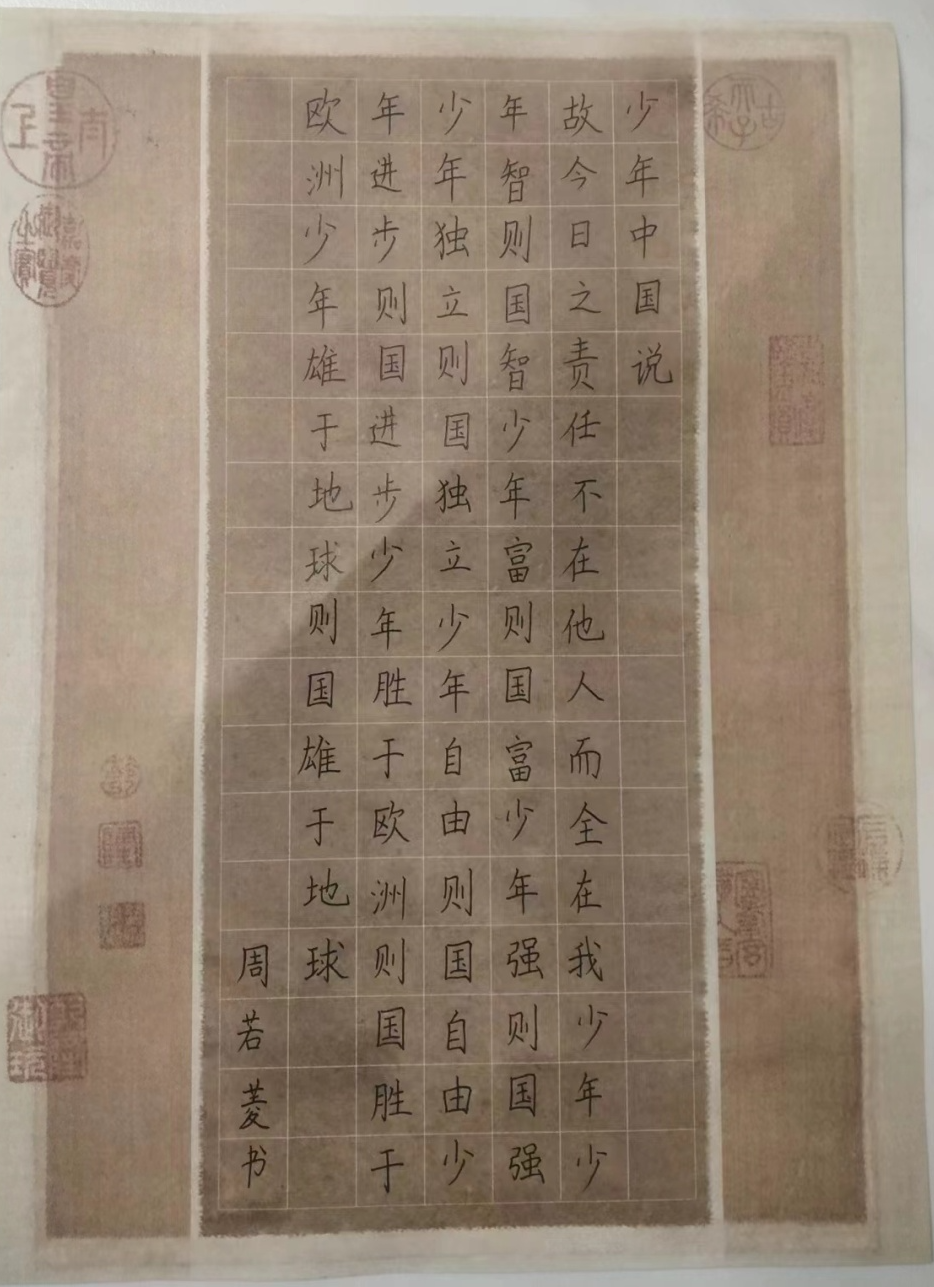 少年中国说
故今日之责任不在他人而全在我少年少
年智则国智少年富则国富少年强则国强
少年独立则国独立少年自由则国自由少
年进步则国进步少年胜于欧洲则国胜于
欧洲少年雄于地球则国雄于地球
周若菱书